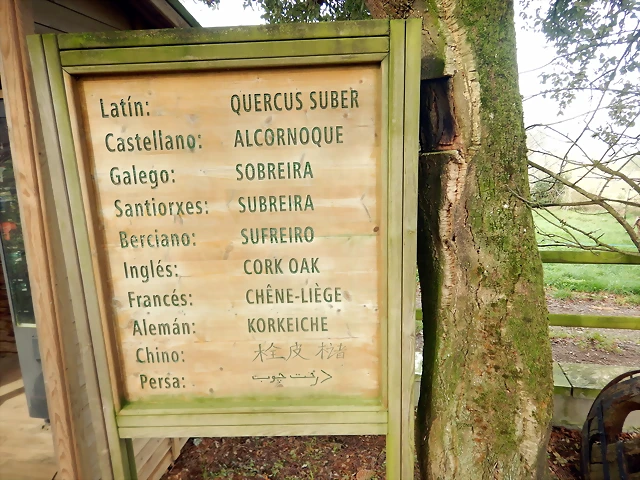 Latín: QUERCUS SUBER
Castellano: ALCORNOQUE
Galego: SOBREIRA
Santiorxes: SUBREIRA
Berciano: SUFREIRO
Inglés: CORK OAK
Francés: CHÊNE-LIÈGE
Alemán: KORKEICHE
Chino: 栓皮槠
Persa: درخت چوب